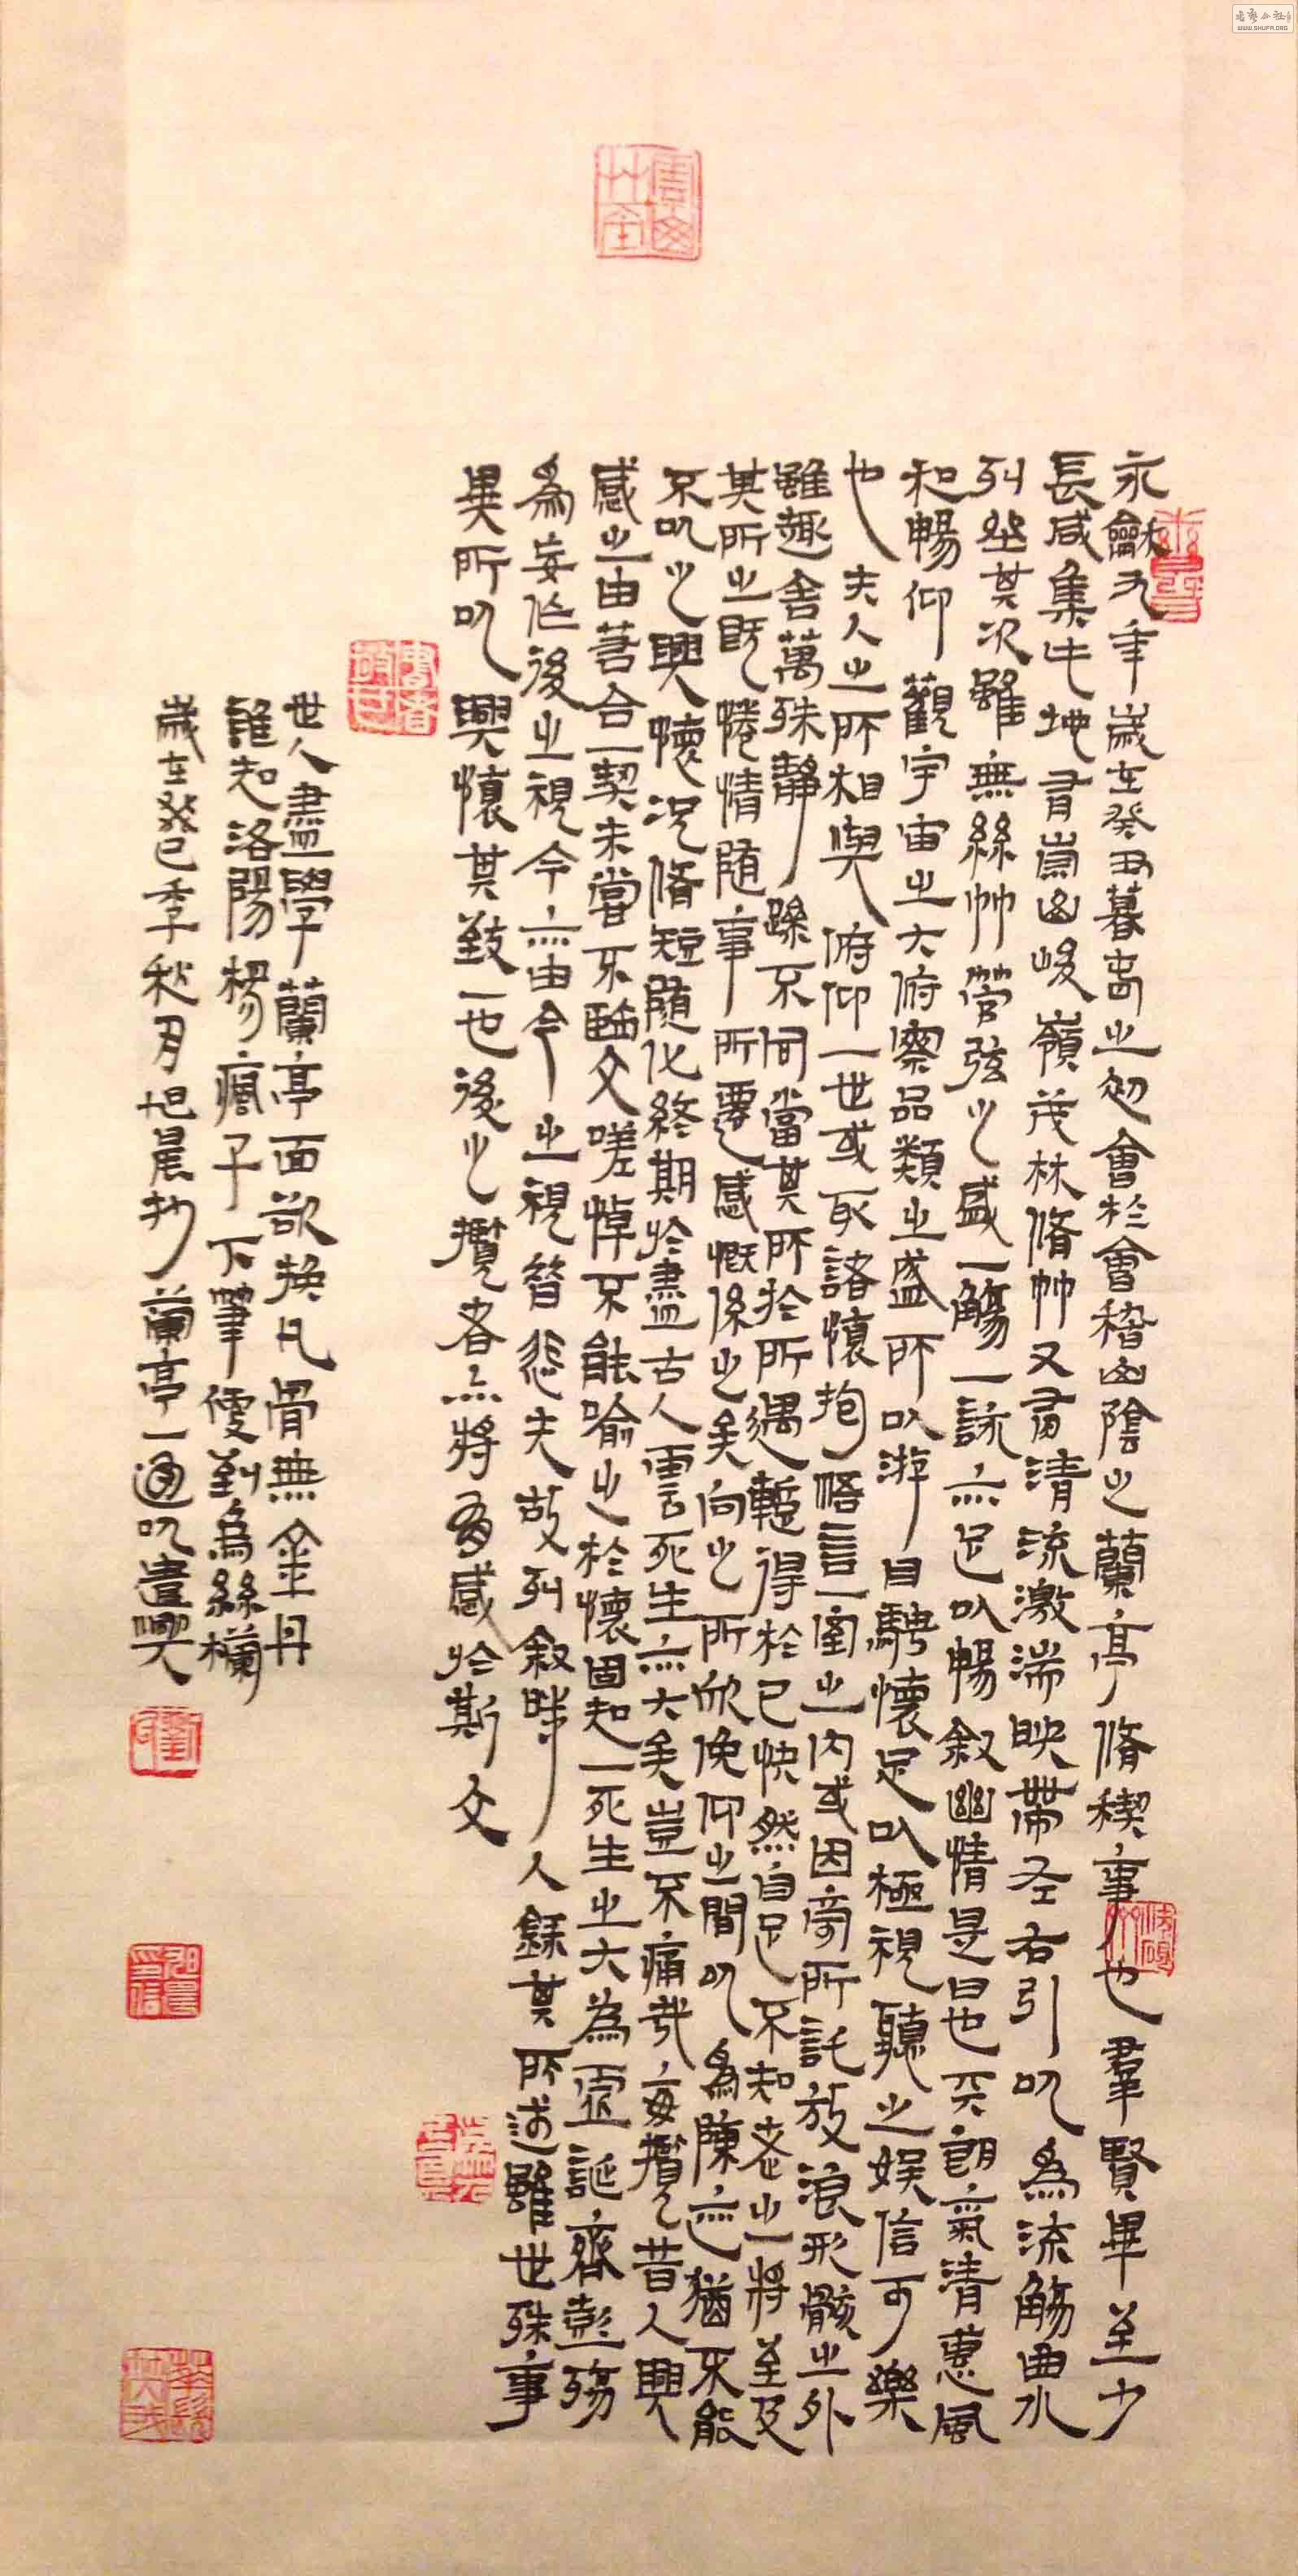 永龢九年歲在癸丑暮春之初會於會稽山陰之蘭亭脩稧事也羣賢畢至少
長咸集此地有崇山峻嶺茂林脩竹又有清流激湍映帶左右引以為流觴曲水
列坐其次雖無絲竹管弦之盛一觴一詠亦足以暢叙幽情是日也天朗氣清惠風
和暢仰觀宇宙之大俯察品類之盛所以游目騁懷足以極視聽之娱信可樂
也夫人之所相與俯仰一世或取諸懷抱悟言一室之内或因寄所託放浪形骸之外
雖趣舍萬殊靜躁不同當其所於所遇蹔得於己快然自足不知老之將至及
其所之既惓情隨事所遷感慨係之矣向之所欣俛仰之間以為陳迹猶不能
不以之興懷況脩短隨化終期於盡古人雲死生亦大矣豈不痛哉每攬昔人興
感之由若合一契未嘗不臨文嗟悼不能喻之於懷固知一死生之大為虛誕齊彭殤
為妄作後之視今亦由今之視昔悲夫故列叙時人録其所述雖世殊事
異所以興懷其致一也後之攬者亦將有感於斯文
世人盡學蘭亭面欲换凡骨無金丹
誰知洛陽楊瘋子下筆便到烏絲欄
歲在癸巳季秋月旭晨抄蘭亭一通以遣興
WWW.SHUFA.ORG